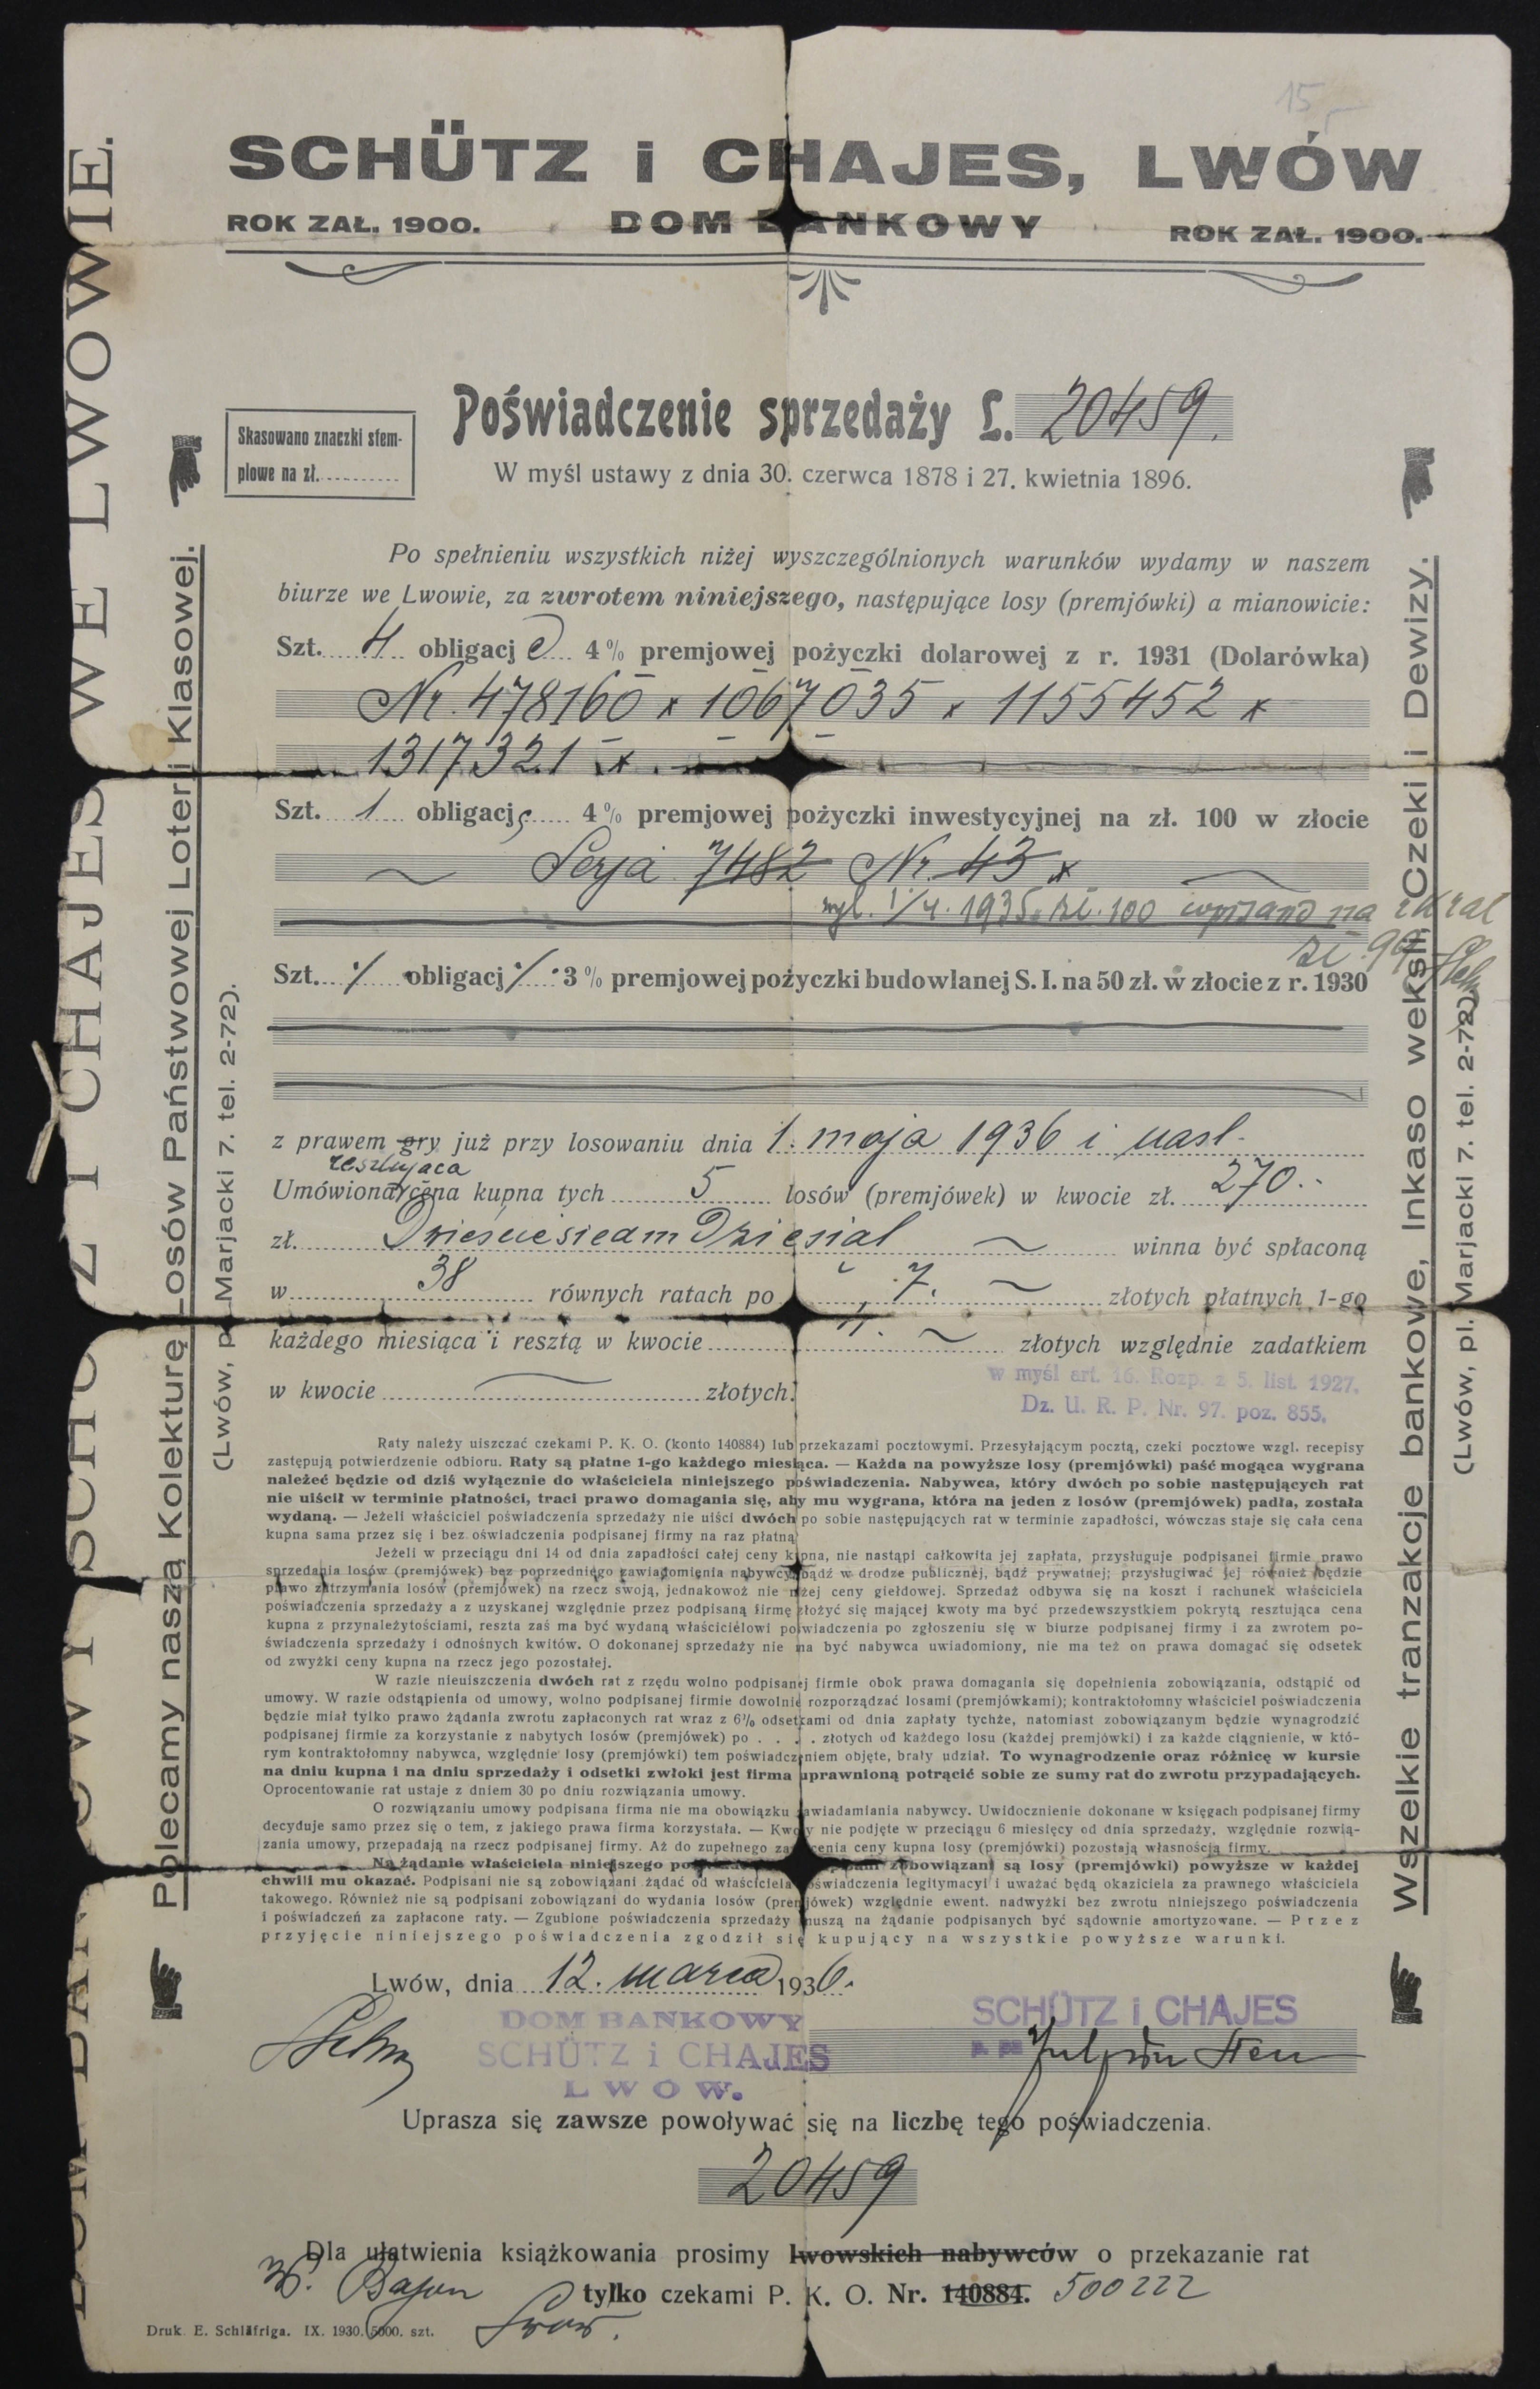 15
SCHÜTZ i CHAJES, LWÓW
ROK ZAŁ. 1900. DOM BANKOWY ROK ZAŁ. 1900.
Skasowano znaczki stem-
plowe na zł.
Poświadczenie sprzedaży L. 20459.
W myśl ustawy z dnia 30. czerwca 1878 i 27. kwietnia 1896.
Po spełnieniu wszystkich niżej wyszczególnionych warunków wydamy w naszem
biurze we Lwowie, za zwrotem niniejszego, następujące losy (premjówki) a mianowicie:
Szt. 4 obligacj e 4% premjowej pożyczki dolarowej z r. 1931 (Dolarówka)
Nr. 478160 x 1067035 x 1155452 x
1317321 x
Szt. 1 obligacj ę 4% premjowej pożyczki inwestycyjnej na zł. 100 w złocie
Serja 7482 Nr. 43 x
wyl. 1/4. 1935. zł. 100 wpisano na
zł. 96
Szt. ·/· obligacj ·/· 3% premjowej pożyczki budowlanej S. I. na 50 zł. w złocie z r. 1930
z prawem gry już przy losowaniu dnia 1. maja 1936 i nast.
resztująca
Umówiona cena kupna tych 5 losów (premjówek) w kwocie zł. 270..
zł. Dwieściesiedmdziesiat winna być spłaconą
w 38 równych ratach po 7. złotych płatnych 1-go
każdego miesiąca i resztą w kwocie 4. złotych względnie zadatkiem
w kwocie złotych.
w myśl art. 16. Rozp. z 5. list. 1927.
Dz. U. R. P. Nr. 97. poz. 855.
Raty należy uiszczać czekami P. K. O. (konto 140884) lub przekazami pocztowymi. Przesyłającym pocztą, czeki pocztowe wzgl. recepisy
zastępują potwierdzenie odbioru. Raty są płatne 1-go każdego miesiąca. — Każda na powyższe losy (premjówki) paść mogąca wygrana
należeć będzie od dziś wyłącznie do właściciela niniejszego poświadczenia. Nabywca, który dwóch po sobie następujących rat
nie uiścił w terminie płatności, traci prawo domagania się, aby mu wygrana, która na jeden z losów (premjówek) padła, została
wydaną. — Jeżeli właściciel poświadczenia sprzedaży nie uiści dwóch po sobie następujących rat w terminie zapadłości, wówczas staje się cała cena
kupna sama przez się i bez oświadczenia podpisanej firmy na raz płatną
Jeżeli w przeciągu dni 14 od dnia zapadłości całej ceny kupna, nie nastąpi całkowita jej zapłata, przysługuje podpisanej firmie prawo
sprzedania losów (premjówek) bez poprzedniego zawiadomienia nabywcy bądź w drodze publicznej, bądź prywatnej; przysługiwać jej również będzie
prawo zatrzymania losów (premjówek) na rzecz swoją, jednakowoż nie niżej ceny giełdowej. Sprzedaż odbywa się na koszt i rachunek właściciela
poświadczenia sprzedaży a z uzyskanej względnie przez podpisaną firmę złożyć się mającej kwoty ma być przedewszystkiem pokrytą resztująca cena
kupna z przynależytościami, reszta zaś ma być wydaną właścicielowi poświadczenia po zgłoszeniu się w biurze podpisanej firmy i za zwrotem po-
świadczenia sprzedaży i odnośnych kwitów. O dokonanej sprzedaży nie ma być nabywca uwiadomiony, nie ma też on prawa domagać się odsetek
od zwyżki ceny kupna na rzecz jego pozostałej.
W razie nieuiszczenia dwóch rat z rzędu wolno podpisanej firmie obok prawa domagania się dopełnienia zobowiązania, odstąpić od
umowy. W razie odstąpienia od umowy, wolno podpisanej firmie dowolnie rozporządzać losami (premjówkami); kontraktołomny właściciel poświadczenia
będzie miał tylko prawo żądania zwrotu zapłaconych rat wraz z 6% odsetkami od dnia zapłaty tychże, natomiast zobowiązanym będzie wynagrodzić
podpisanej firmie za korzystanie z nabytych losów (premjówek) po . . . . złotych od każdego losu (każdej premjówki) i za każde ciągnienie, w któ-
rym kontraktołomny nabywca, względnie losy (premjówki) tem poświadczeniem objęte, brały udział. To wynagrodzenie oraz różnicę w kursie
na dniu kupna i na dniu sprzedaży i odsetki zwłoki jest firma uprawnioną potrącić sobie ze sumy rat do zwrotu przypadających.
Oprocentowanie rat ustaje z dniem 30 po dniu rozwiązania umowy.
O rozwiązaniu umowy podpisana firma nie ma obowiązku zawiadamiania nabywcy. Uwidocznienie dokonane w księgach podpisanej firmy
decyduje samo przez się o tem, z jakiego prawa firma korzystała. — Kwoty nie podjęte w przeciągu 6 miesięcy od dnia sprzedaży, względnie rozwią-
zania umowy, przepadają na rzecz podpisanej firmy. Aż do zupełnego zapłacenia ceny kupna losy (premjówki) pozostają własnością firmy.
Na żądanie właściciela niniejszego zobowiązani są losy (premjówki) powyższe w każdej
chwili mu okazać. Podpisani nie są zobowiązani żądać od właściciela poświadczenia legitymacyi i uważać będą okaziciela za prawnego właściciela
takowego. Również nie są podpisani zobowiązani do wydania losów (premjówek) względnie ewent. nadwyżki bez zwrotu niniejszego poświadczenia
i poświadczeń za zapłacone raty. — Zgubione poświadczenia sprzedaży muszą na żądanie podpisanych być sądownie amortyzowane. — Przez
przyjęcie niniejszego poświadczenia zgodził się kupujący na wszystkie powyższe warunki.
Lwów, dnia 12. marca 1936.
DOM BANKOWY
SCHÜTZ i CHAJES
LWÓW.
SCHÜTZ i CHAJES
p. pa
Uprasza się zawsze powoływać się na liczbę tego poświadczenia.
20459
Dla ułatwienia książkowania prosimy lwowskich nabywców o przekazanie rat
tylko czekami P. K. O. Nr. 140884. 500222
W. Bajon
Lwów.
Druk. E. Schläfriga. IX. 1930. 5000. szt.
DOM BANKOWY SCHÜTZ I CHAJES WE LWOWIE.
Polecamy naszą Kolekturę Losów Państwowej Loterji Klasowej.
(Lwów, pl. Marjacki 7. tel. 2-72).
Wszelkie tranzakcje bankowe, Inkaso weksli, Czeki i Dewizy.
(Lwów, pl. Marjacki 7. tel. 2-72)